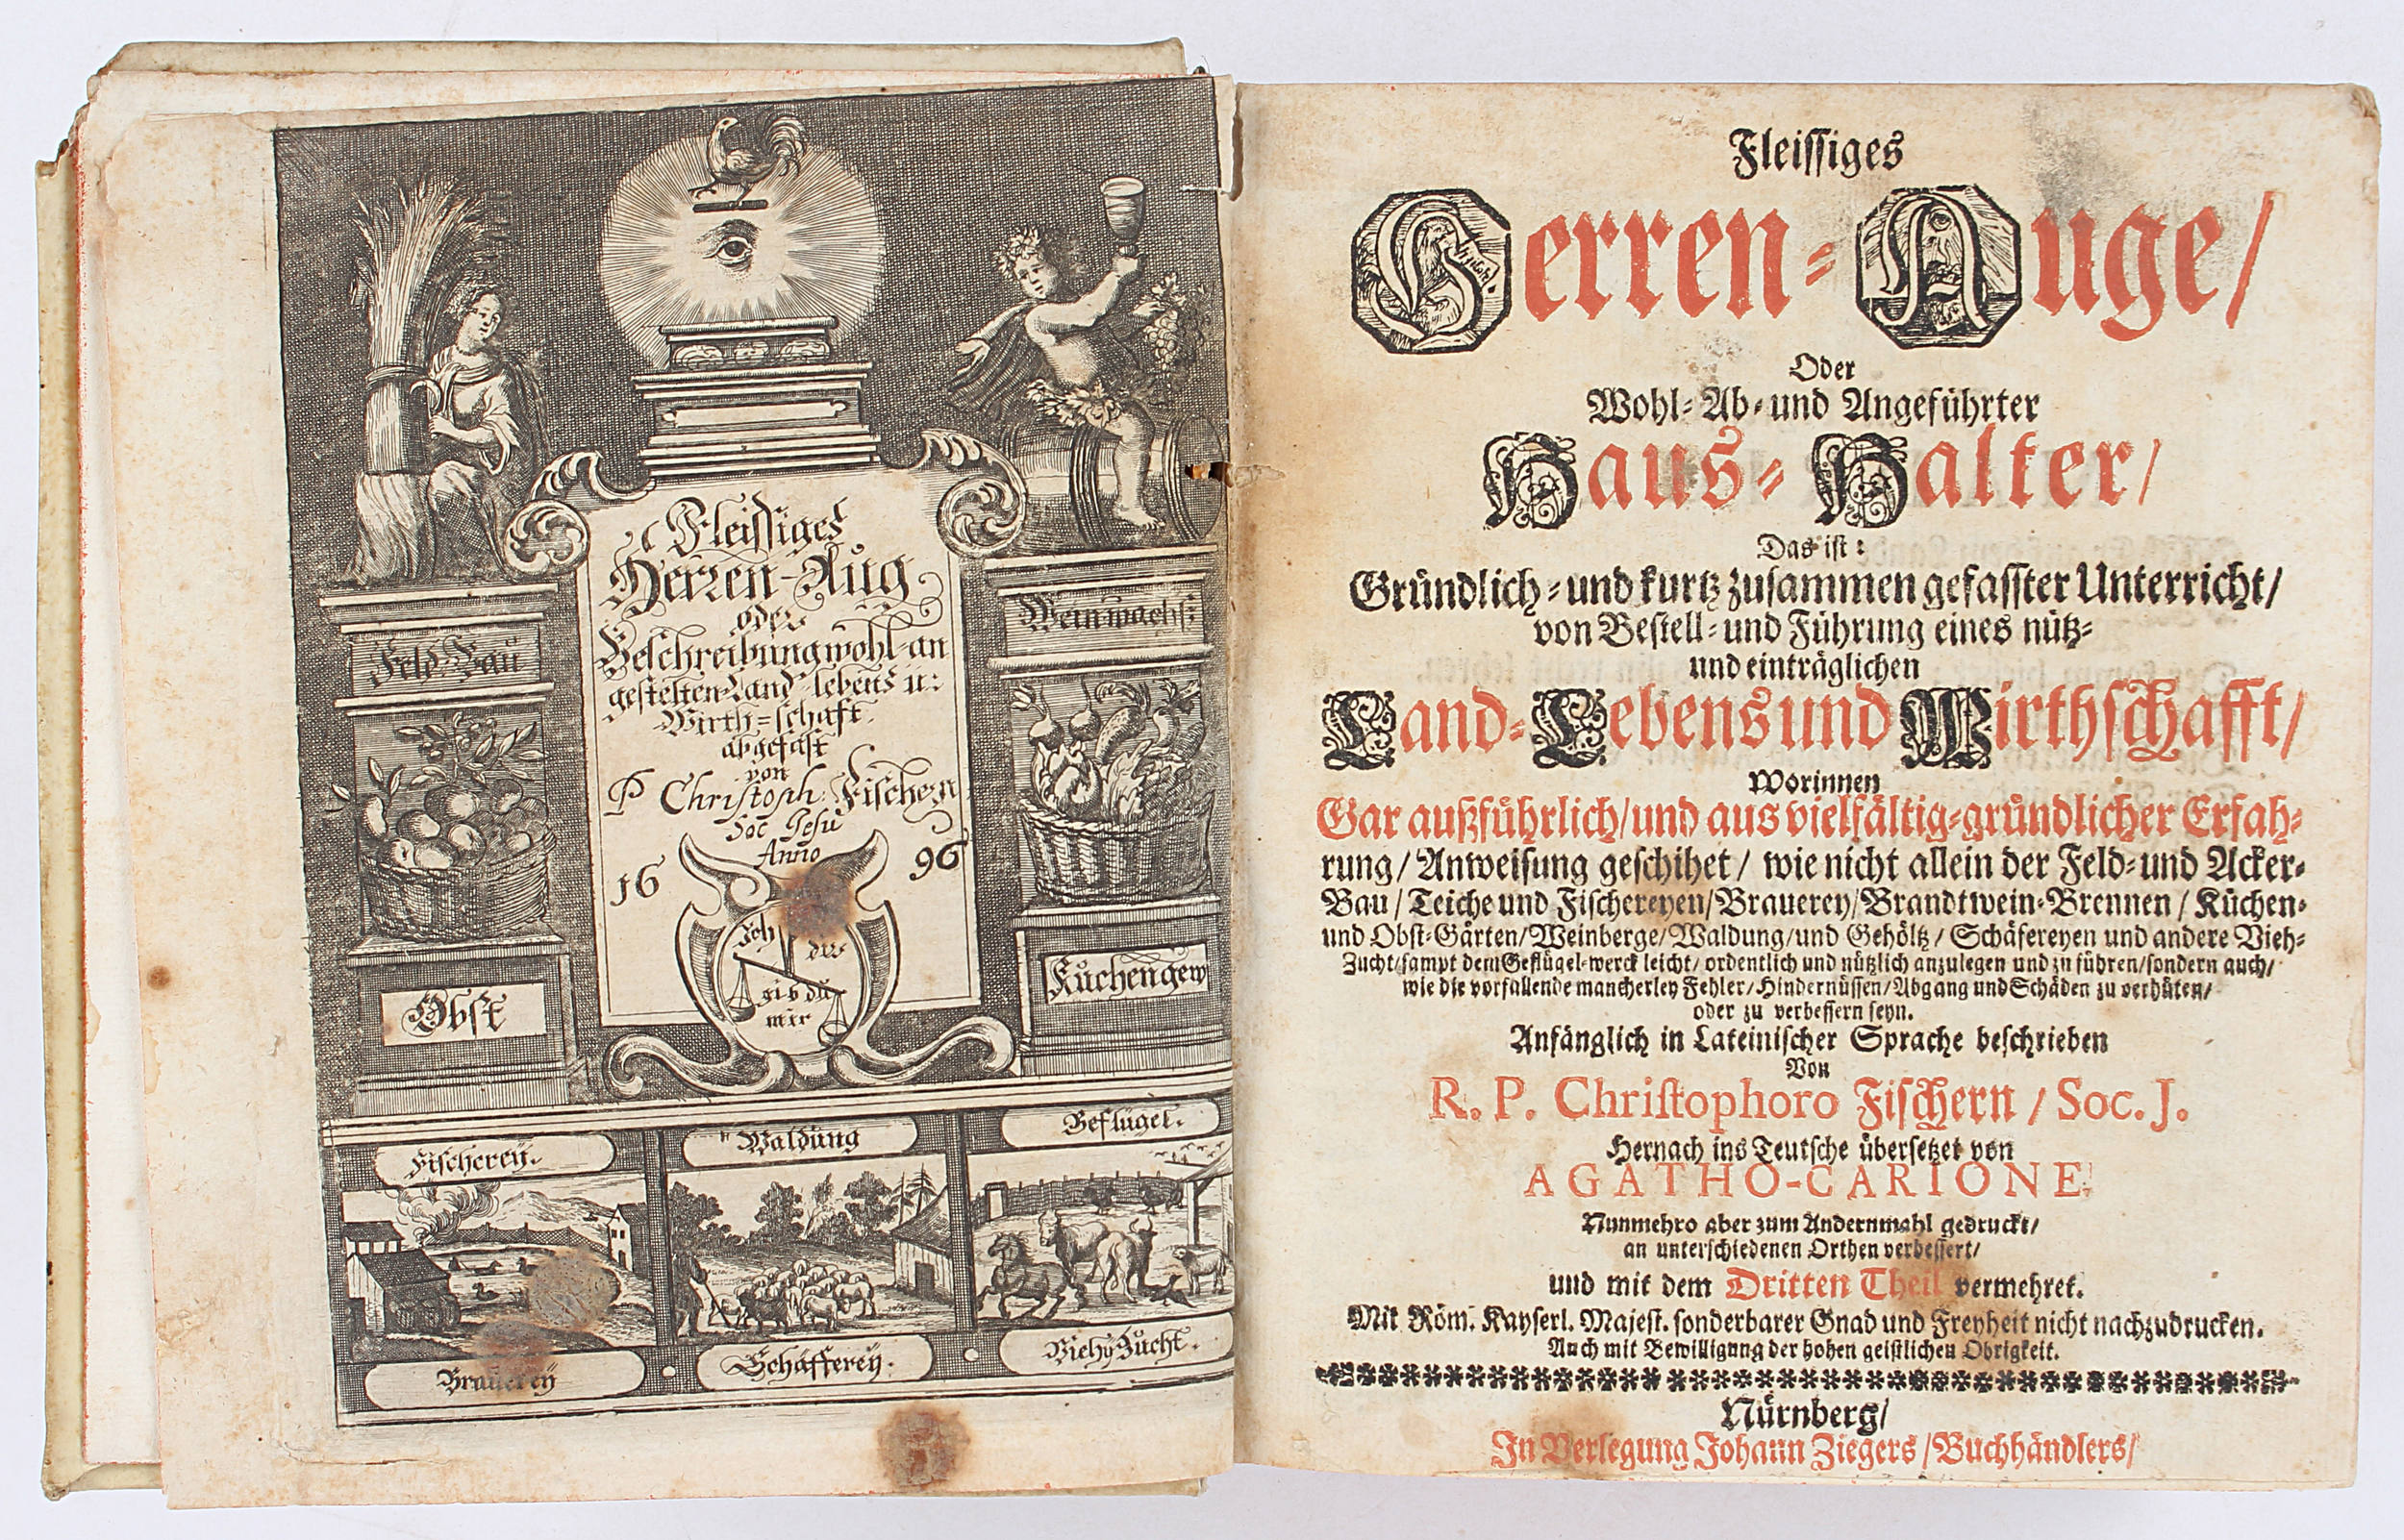 Fleissiges
Herren-Aug
oder
Beschreibung wohl-an
gestelten Land-lebens u:
Wirth=schaft.
abgefast
von
P Christoph: Fischern
Soc Jesu
Anno
16 96
Ich die
gib du
mir
Feld-Bau
Obst
Weinwachs:
Kuchengew
Fischereÿ.
Waldung
Geflügel.
Brauereÿ
Schäffereÿ.
Viehy Zucht.
Fleissiges
Herren-Auge/
Oder
Wohl-Ab-und Angeführter
Haus-Halter/
Das ist:
Gründlich-und kurtz zusammen gefasster Unterricht/
von Bestell-und Führung eines nütz-
und einträglichen
Land-Lebens und Wirthschafft/
Worinnen
Gar außführlich/und aus vielfältig-gründlicher Erfah-
rung/Anweisung geschihet/wie nicht allein der Feld-und Acker-
Bau/Teiche und Fischereyen/Brauerey/Brandtwein-Brennen/Küchen-
und Obst-Gärten/Weinberge/Waldung/und Gehöltz/Schäfereyen und andere Vieh-
Zucht/sampt dem Geflügel-werck leicht/ordentlich und nützlich anzulegen und zu führen/sondern auch/
wie die vorfallende mancherley Fehler/Hindernüssen/Abgang und Schäden zu verhüten/
oder zu verbessern seyn.
Anfänglich in Lateinischer Sprache beschrieben
Von
R. P. Christophoro Fischern/Soc. J.
Hernach ins Teutsche übersetzet von
AGATHO-CARIONE.
Nunmehro aber zum Andernmahl gedruckt/
an unterschiedenen Orthen verbessert/
und mit dem Dritten Theil vermehret.
Mit Röm. Kayserl. Majest. sonderbarer Gnad und Freyheit nicht nachzudrucken.
Auch mit Bewilligung der hohen geistlichen Obrigkeit.
Nürnberg/
In Verlegung Johann Ziegers/Buchhändlers/